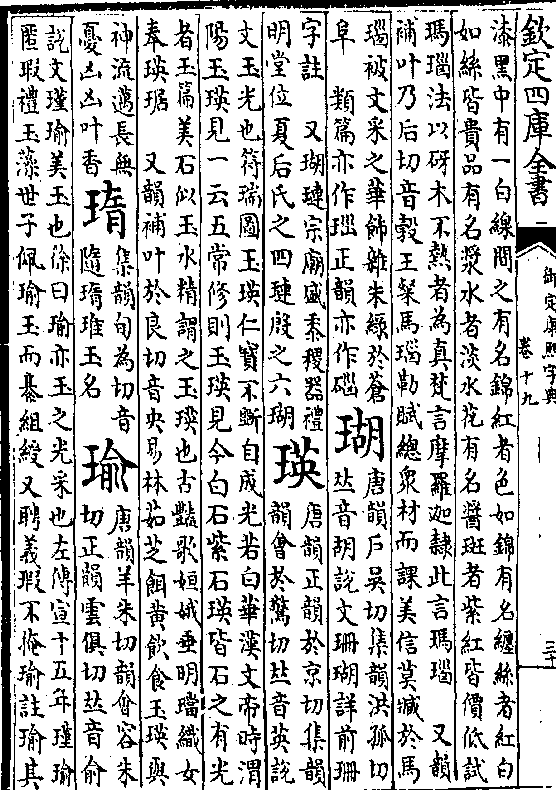 欽定四庫全書
御定康熙字典
卷十九
漆黑中有一白線間之有名錦紅者色如錦有名纏絲者紅白
如絲皆貴品有名漿水者淡水花有名醬斑者紫紅皆價低試
瑪瑙法以砑木不熱者為真梵言摩羅迦隷此言瑪瑙 又韻
補叶乃后切音㝅王粲馬瑙勒賦總衆材而課美信莫臧於馬
瑙被文采之華飾雜朱綠於蒼
阜 類篇亦作瑙正韻亦作碯
瑚
唐韻户吳切集韻洪孤切
𠀤音胡說文珊瑚詳前珊
字註 又瑚璉宗廟盛黍稷器禮
明堂位夏后氏之四璉殷之六瑚
瑛
唐韻正韻於京切集韻
韻會於驚切𠀤音英說
文玉光也符瑞圖玉瑛仁寶不斷自成光若白華漢文帝時渭
陽玉瑛見一云五常修則玉瑛見今白石紫石瑛皆石之有光
者玉篇美石似玉水精謂之玉瑛也古豔歌姮娥垂明璫織女
奉瑛琚 又韻補叶於良切音央易林茹芝餌黄飲食玉瑛與
神流通長無
憂凶凶叶香
㻟
集韻旬為切音
隨㻟琟玉名
瑜
唐韻羊朱切韻會容朱
切正韻雲俱切𠀤音俞
說文瑾瑜美玉也徐曰瑜亦玉之光采也左傳宣十五年瑾瑜
匿瑕禮玉藻世子佩瑜玉而綦組綬又聘義瑕不掩瑜註瑜其